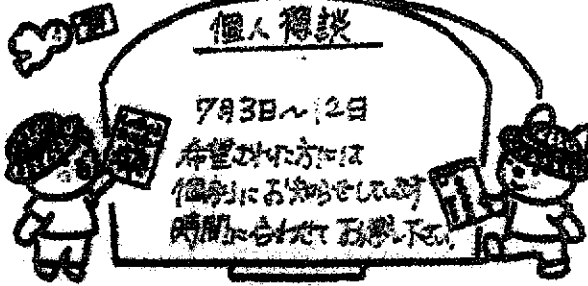 個人懇談
7月3日〜12日
希望された方には
個別にお知らせしています
時間に合わせてお越し下さい